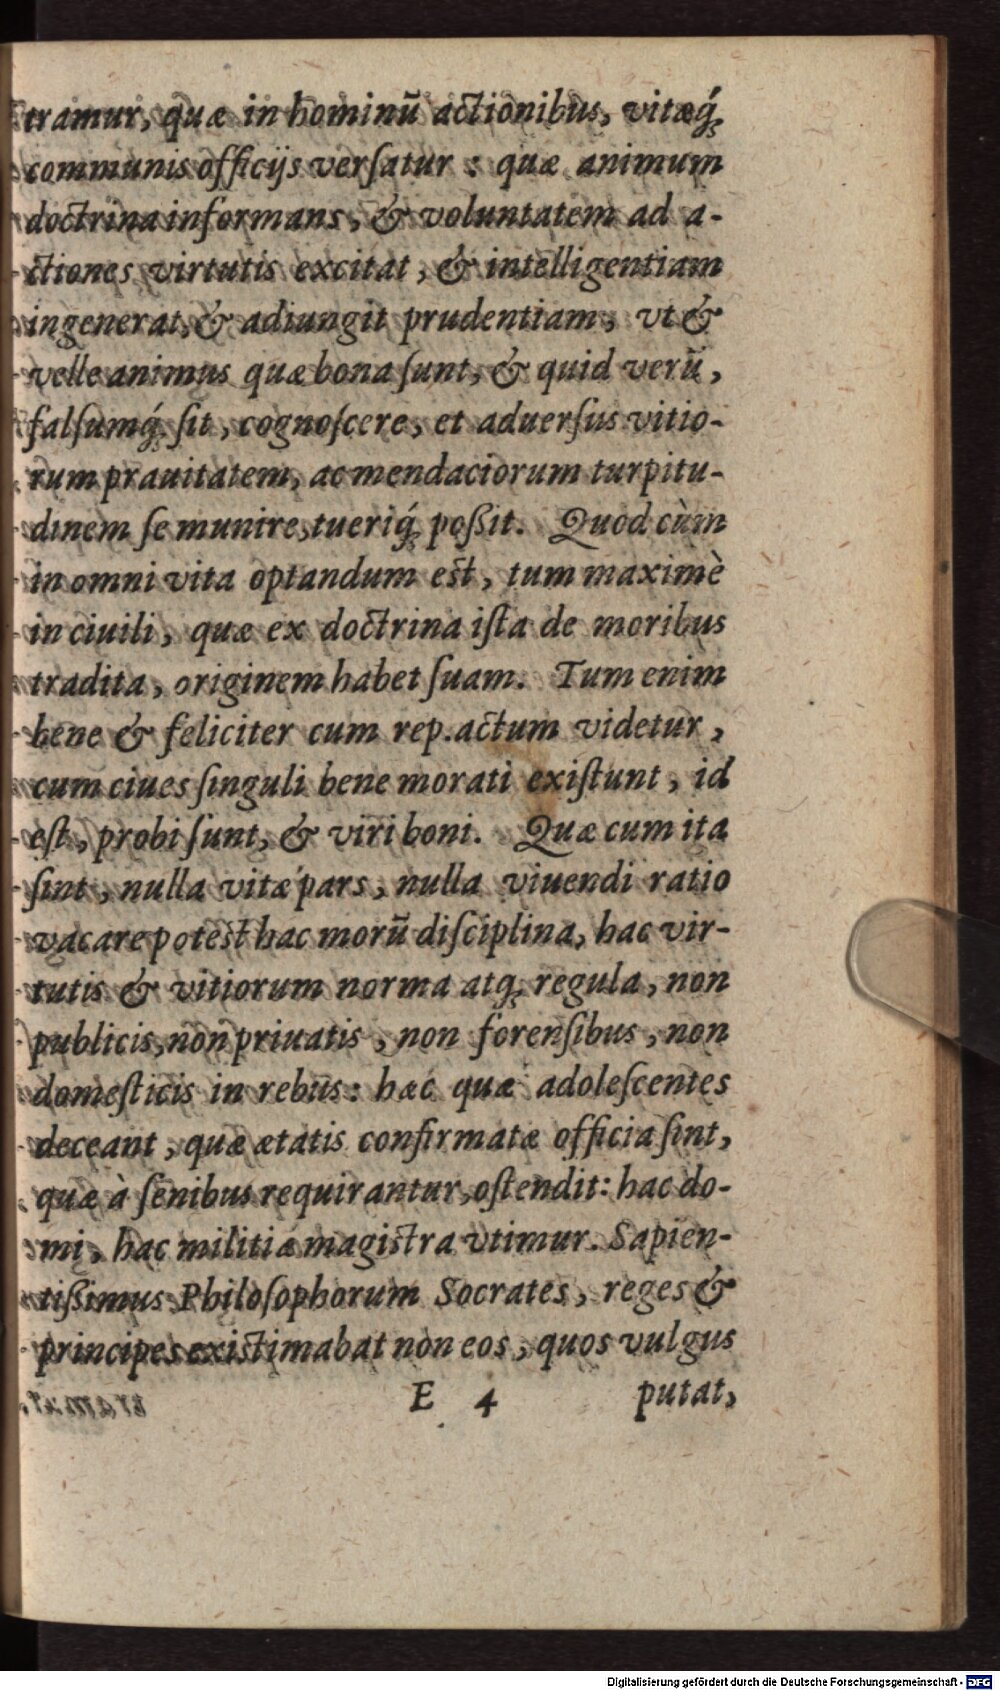 tramur, quæ in hominū actionibus, vitæq́;
communis officijs verſatur : quæ animum
doctrina informans, & voluntatem ad a-
ctiones virtutis excitat, & intelligentiam
ingenerat, & adiungit prudentiam, vt &
velle animus quæ bona ſunt, & quid verū,
falſumq́; ſit, cognoſcere, et aduerſus vitio-
rum prauitatem, ac mendaciorum turpitu-
dinem ſe munire, tueriq́; poßit. Quod cùm
in omni vita optandum est, tum maximè
in ciuili, quæ ex doctrina iſta de moribus
tradita, originem habet ſuam. Tum enim
bene & feliciter cum rep. actum videtur,
cum ciues ſinguli bene morati exiſtunt, id
eſt, probi ſunt, & viri boni. Quæ cum ita
ſint, nulla vitæ pars, nulla viuendi ratio
vacare potest hac morū diſciplina, hac vir-
tutis & vitiorum norma atq; regula, non
publicis, non priuatis, non forenſibus, non
domeſticis in rebus: hæc quæ adoleſcentes
deceant, quæ ætatis confirmatæ officia ſint,
quæ à ſenibus requirantur, oſtendit: hac do-
mi, hac militiæ magistra vtimur. Sapien-
tißimus Philoſophorum Socrates, reges &
principes existimabat non eos, quos vulgus
E 4 putat,
Digitalisierung gefördert durch die Deutsche Forschungsgemeinschaft - DFG